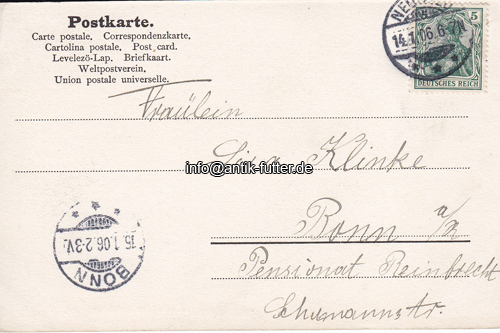 Postkarte.
Carte postale. Correspondenzkarte.
Cartolina postale. Post card.
Levelező-Lap. Briefkaart.
Weltpostverein.
Union postale universelle.
14.1.06.6
5
DEUTSCHES REICH
Fräulein
info@antik-futter.de
Lisa Klinke
Bonn a/R
Pensionat Reinbrecht
Schumannstr.
15.1.06.2-3V.
BONN